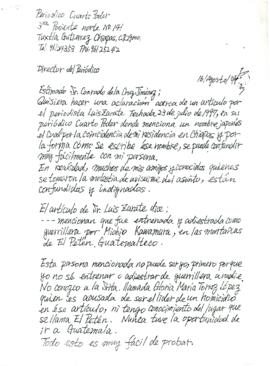 Periodico Cuarto Poder
Poniente norte No 141
Tuxtla Gutierrez Chiapas,
Tel.
Director del Periódico
Estimado Sr. Conrado de la Cruz Jiménez;
Quisiera hacer una aclaración acerca de un artículo por
el periodista Luis Zarate fechado 29 de julio de 1997, en su
periódico Cuarto Poder donde menciona un nombre japonés
el cual por la coincidencia de mi residencia en Chiapas y por
la forma cómo se escribe ese nombre, se puede confundir
muy fácilmente con mi persona.
En realidad, muchos de mis amigos y conocidos quienes
se tomaron la molestia de el asunto, están
confundidos y indignados.
El artículo de Sr. Luis Zarate dice:
--- mencionan que fue entrenada y adiestrada como
guerrillera por Michio Kawamura, en las montañas
de El Petén, Guatemalteco.
Esta persona mencionada no puede ser yo, primero porque
yo no sé entrenar o adiestrar de guerrillera, a nadie.
No conozco a la Srta. llamada Gloria María Torres López
quien es acusada de ser el líder de un homicidio
en ese artículo, ni tengo conocimiento del lugar que
se llama El Petén. Nunca tuve la oportunidad de
ir a Guatemala.
Todo esto es muy fácil de probar.